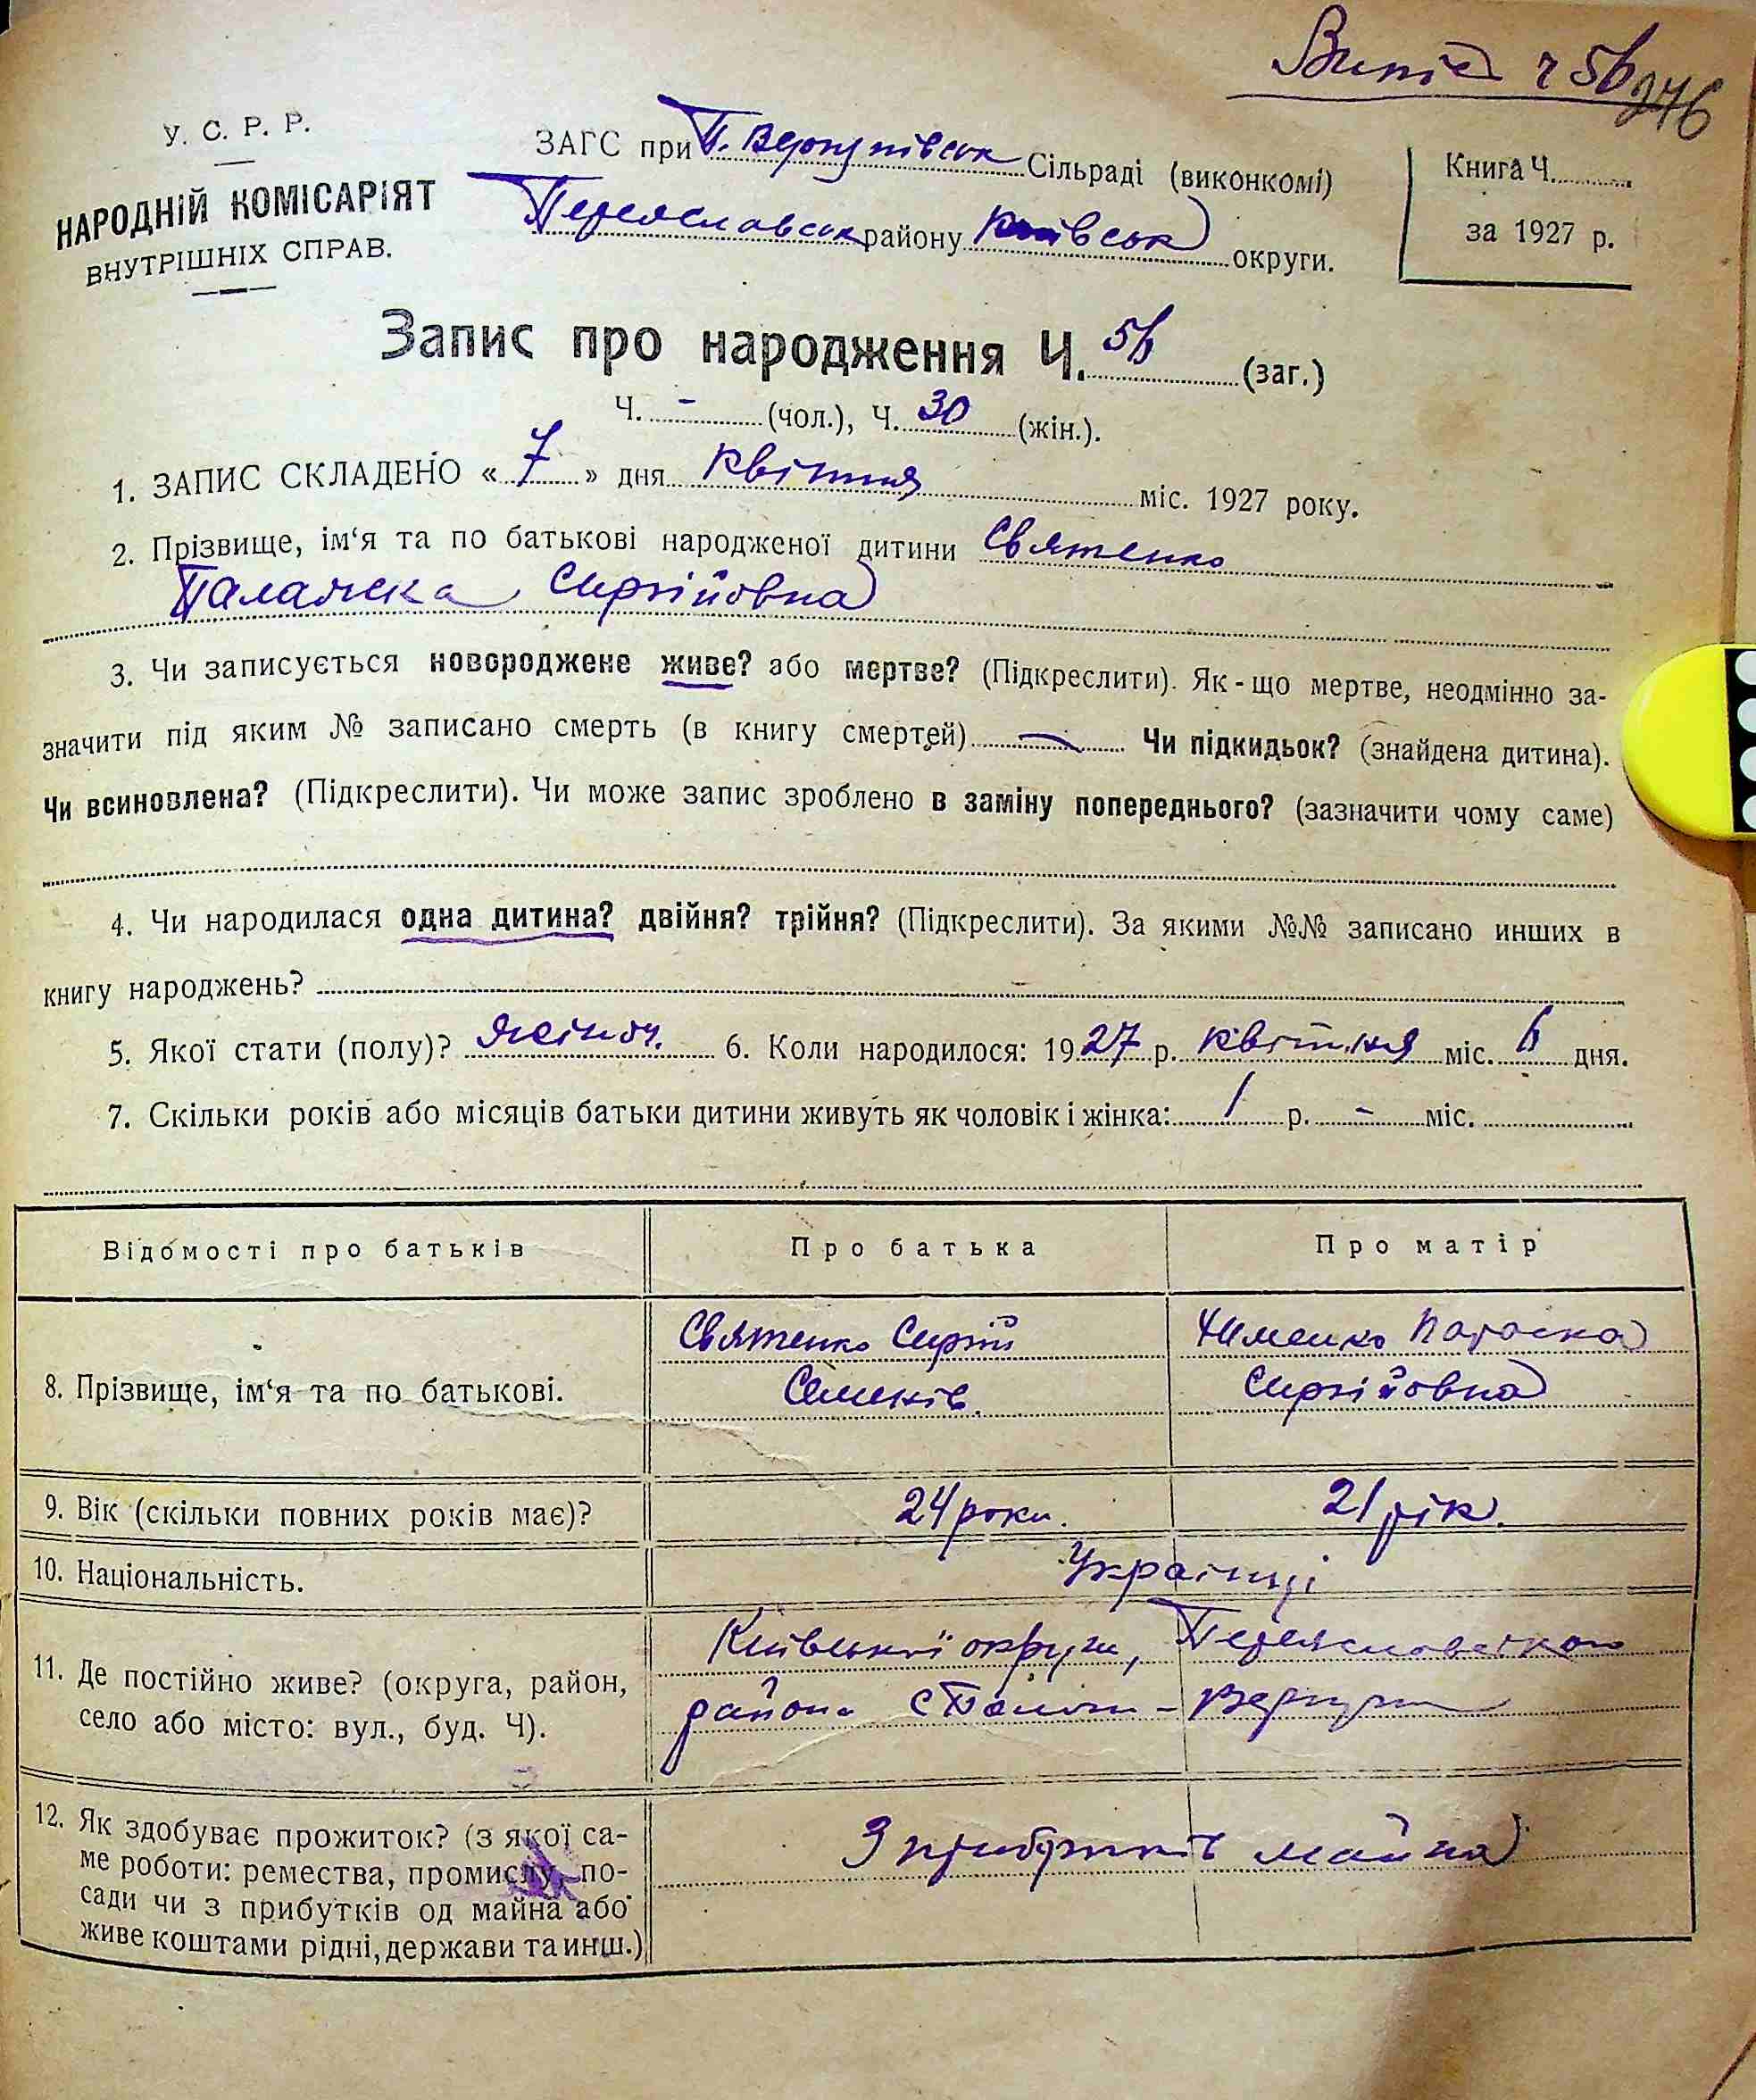 Випис ч 56
246
У. С. Р. Р.
НАРОДНІЙ КОМІСАРІЯТ
ВНУТРІШНІХ СПРАВ.
ЗАГС при П. Вергунівськ Сільраді (виконкомі)
Переяславськ району Київськ округи.
Книга Ч.
за 1927 р.
Запис про народження Ч. 56 (заг.)
Ч. - (чол.), Ч. 30 (жін.).
1. ЗАПИС СКЛАДЕНО « 7 » дня квітня міс. 1927 року.
2. Прізвище, ім‘я та по батькові народженої дитини Святенко
Палажка Сиргійовна
3. Чи записується новороджене живе? або мертве? (Підкреслити). Як - що мертве, неодмінно за-
значити під яким № записано смерть (в книгу смертей) — Чи підкидьок? (знайдена дитина).
Чи всиновлена? (Підкреслити). Чи може запис зроблено в заміну попереднього? (зазначити чому саме)
4. Чи народилася одна дитина? двійня? трійня? (Підкреслити). За якими №№ записано инших в
книгу народжень? -
5. Якої стати (полу)? жіноч. 6. Коли народилося: 1927 р. квітня міс. 6 дня.
7. Скільки років або місяців батьки дитини живуть як чоловік і жінка: 1 р. - міс.
Відомості про батьків Про батька Про матір
8. Прізвище, ім‘я та по батькові.
Святенко Сиргій
Семенів.
Параска
Сиргійовна
9. Вік (скільки повних років має)? 24 роки. 21 рік.
10. Національність. Українці
11. Де постійно живе? (округа, район,
село або місто: вул., буд. Ч).
Київської округи, Переяславського
района с - Вергуни
12. Як здобуває прожиток? (з якої са-
ме роботи: ремества, промислу, по-
сади чи з прибутків од майна або
живе коштами рідні, держави та инш.)
З прибутків майна